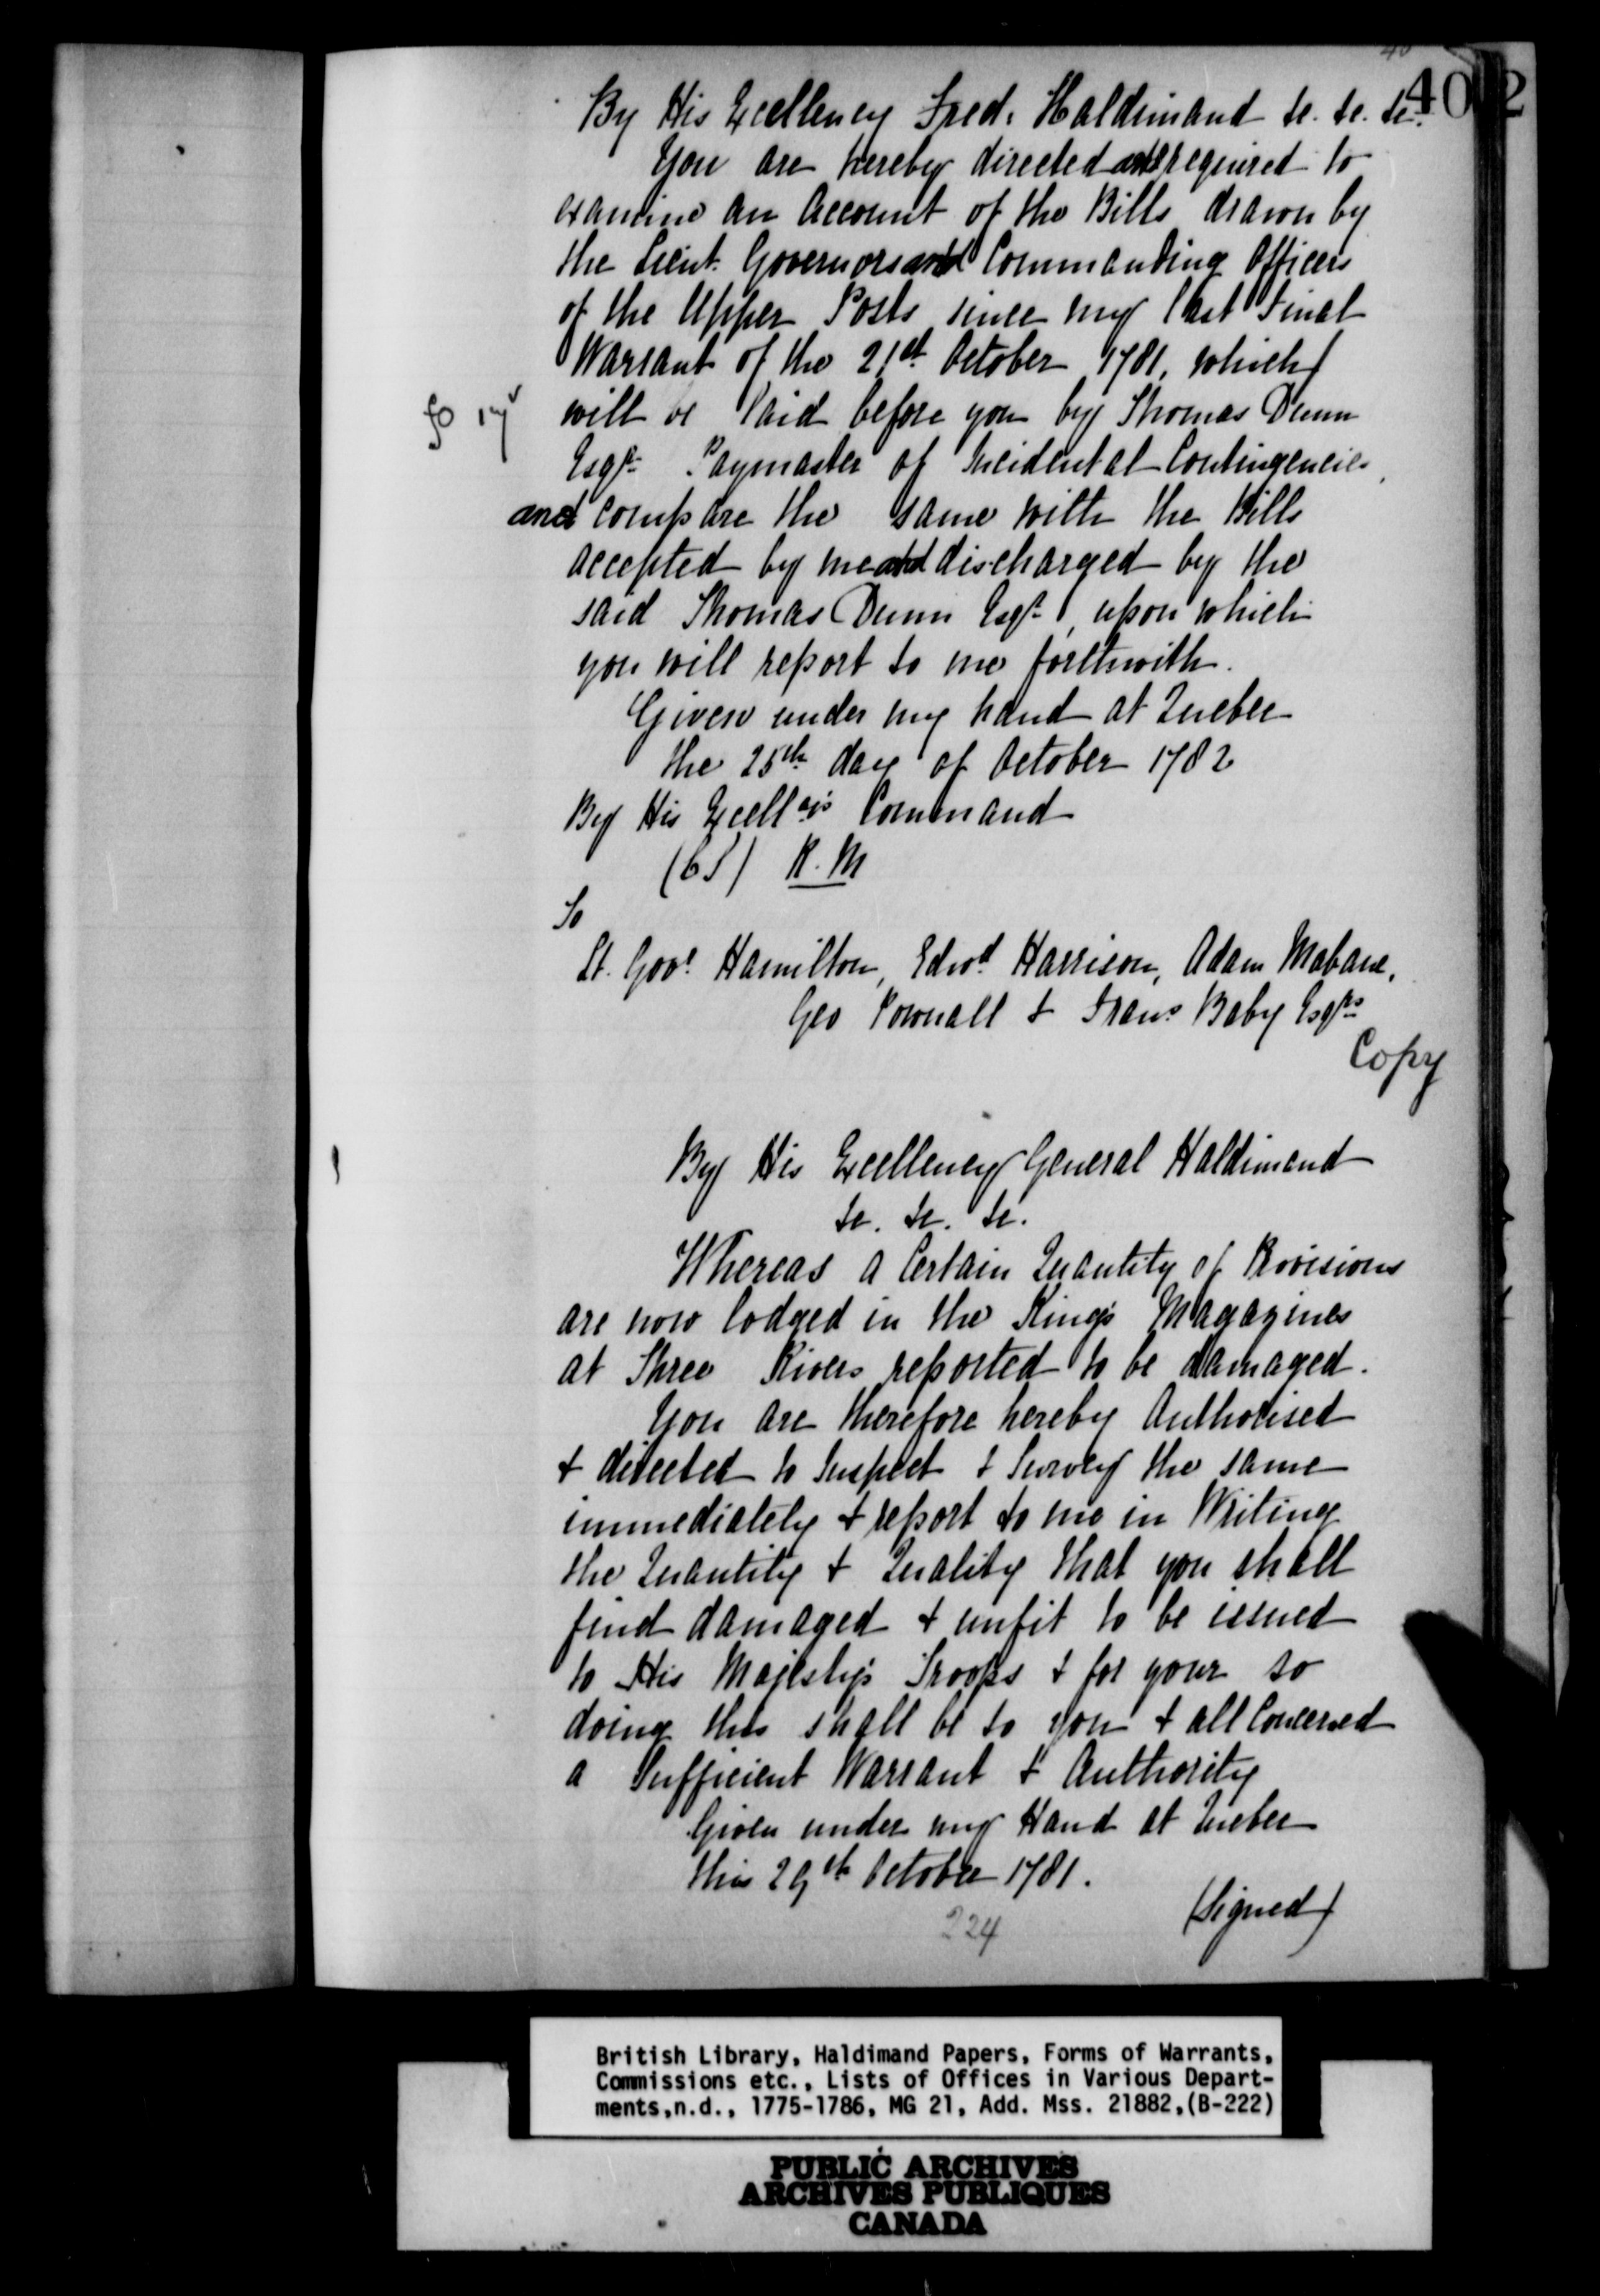 40
402
By His Excellency Fred. Haldimand &c. &c. &c.
You are hereby directed and required to
examine an Account of the Bills drawn by
the Lieut. Governors and Commanding Officers
of the Upper Posts since my last Final
Warrant of the 21st October 1781, which
fo 17v
will be laid before you by Thomas Dunn
Esqr. Paymaster of Incidental Contingencies,
and compare the same with the Bills
accepted by me and discharged by the
said Thomas Dunn Esqr, upon which
you will report to me forthwith.
Given under my hand at Quebec
the 25th day of October 1782
By His Excellcy's Command
R. M
To
Lt. Govr. Hamilton, Edwd. Harrison, Adam Mabane,
Geo Pownall & Frans Baby Esqrs
Copy
By His Excellency General Haldimand
&c. &c. &c.
Whereas a Certain Quantity of Provisions
are now lodged in the King's Magazines
at Three Rivers reported to be damaged.
You are therefore hereby Authorised
& directed to Inspect & Survey the same
immediately & report to me in Writing
the Quantity & Quality that you shall
find damaged & unfit to be issued
to His Majesty's Troops & for your so
doing this shall be to you & all Concerned
a Sufficient Warrant & Authority
Given under my Hand at Quebec
this 29th October 1781.
(Signed)
224
British Library, Haldimand Papers, Forms of Warrants,
Commissions etc., Lists of Offices in Various Depart-
ments,n.d., 1775-1786, MG 21, Add. Mss. 21882,(B-222)
PUBLIC ARCHIVES
ARCHIVES PUBLIQUES
CANADA